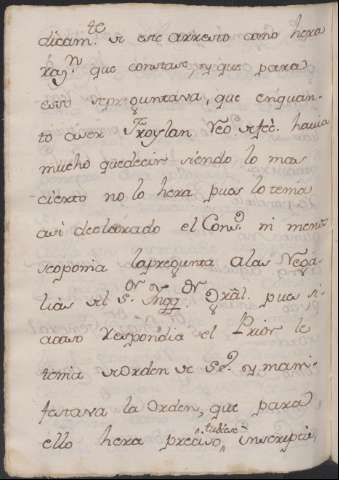 dicam.te de este arresto como hera
raz.n que constase, y que para
esto se preguntava, que en quan-
to a ser Froylan Reo de feè. havia
mucho que decir siendo lo mas
cierto no lo hera pues lo tenia
asi declarado el Cons.o ni menos
se oponia la pregunta a las Rega-
lias del S.or Inqq.or Gràl. pues si
acaso respondia el Prior le
tenia de orden de S.E.a y mani-
festava la orden, que para
ello hera preciso, tubiese inscriptis,